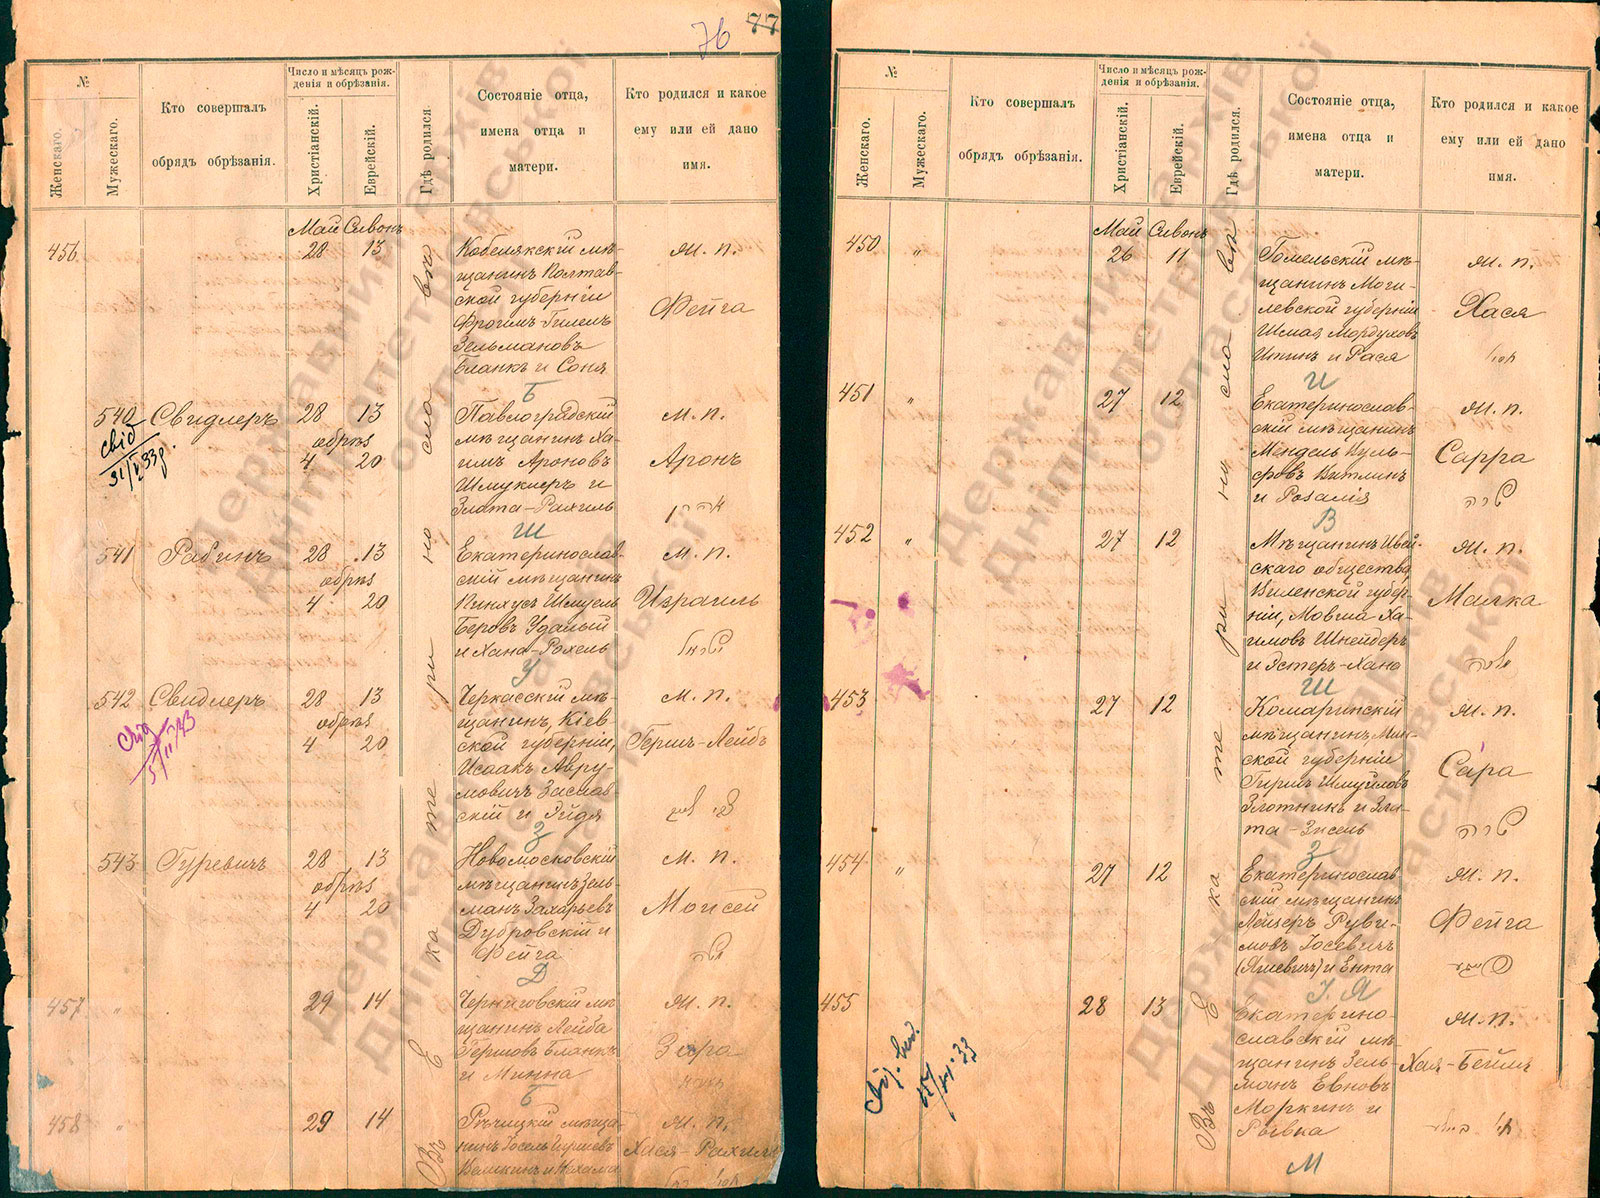 76 77
№
Женскаго.
Мужескаго.
Кто совершалъ
обрядъ обрѣзанія.
Число и мѣсяцъ рож-
денія и обрѣзанія.
Христіанскій.
Еврейскій.
Гдѣ родился.
Состояніе отца,
имена отца и
матери.
Кто родился и какое
ему или ей дано
имя.
Май Сивонъ
Въ Екатеринославѣ
456 28 13
Кобелякскій мѣ-
щанинъ Полтав-
ской губерніи
Фроимъ-Гилелъ
Зельмановъ
Бланкъ и Соня
Б
Ж. п.
Фейга
540 Свидлеръ 28 13
обрѣз
4 20
свід
31/V 33р.
Павлоградскій
мѣщанинъ Ха-
имъ Ароновъ
Шмуклеръ и
Злата-Рахиль
Ш
М. п.
Аронъ
אהרן
541 Рабинъ 28 13
обрѣз
4 20
Екатеринослав-
скій мѣщанинъ
Пинхусъ Шмуель
Беровъ Удалый
и Хана-Рохель
У
М. п.
Израиль
ישראל
542 Свидлеръ 28 13
обрѣз
4 20
Черкасскій мѣ-
щанинъ, Кіев
ской губерніи,
Исаакъ Авру-
мовичъ Заслав-
скій и Эйдя
З
М. п.
Герш-Лейбъ
543 Гуревичъ 28 13
обрѣз
4 20
Новомосковскій
мѣщанинъ Зель-
манъ Захарьевъ
Дубровскій и
Фейга
Д
М. п.
Моисей
משה
457 " 29 14
Черниговскій мѣ
щанинъ Лейба
Гершовъ Бланкъ
и Минна
Б
Ж. п.
458 " 29 14
Рѣчицкій мѣща-
Ж. п.
Хася-Рахиль
№
Женскаго.
Мужескаго.
Кто совершалъ
обрядъ обрѣзанія.
Число и мѣсяцъ рож-
денія и обрѣзанія.
Христіанскій.
Еврейскій.
Гдѣ родился.
Состояніе отца,
имена отца и
матери.
Кто родился и какое
ему или ей дано
имя.
Май Сивонъ
Въ Екатеринославѣ
450 " 26 11
Гомельскій мѣ-
щанинъ Моги-
левской губерніи
Шмая Мордуховъ
и Рася
И
Ж. п.
Хася
451 " 27 12
Екатеринослав-
скій мѣщанинъ
Мендель Вуль-
фовъ Витлинъ
и Розалія
В
Ж. п.
Сарра
שרה
452 " 27 12
Мѣщанинъ
скаго общества,
Виленской губер
ніи, Мовша Ха-
имовъ Шнейдеръ
и Эстеръ-Хана
Ш
Ж. п.
Малка
מלכה
453 27 12
Комаринскій
мѣщанинъ, Мин-
ской губерніи
Гиршъ Шмуйловъ
Злотникъ и Зла-
та-Зисель
З
Ж. п.
Сара
שרה
454 " 27 12
Екатеринослав
скій мѣщанинъ
Лейзеръ Руви-
мовъ Іосевичъ
(Яшевичъ) и Ента
І. Я
Ж. п.
Фейга
455 28 13
Екатерино-
славскій мѣ-
щанинъ Зель-
манъ Евновъ
Моркинъ и
Рывка
М
Ж. п.
Хая-Бейля
Державний архів
Дніпропетровської
області